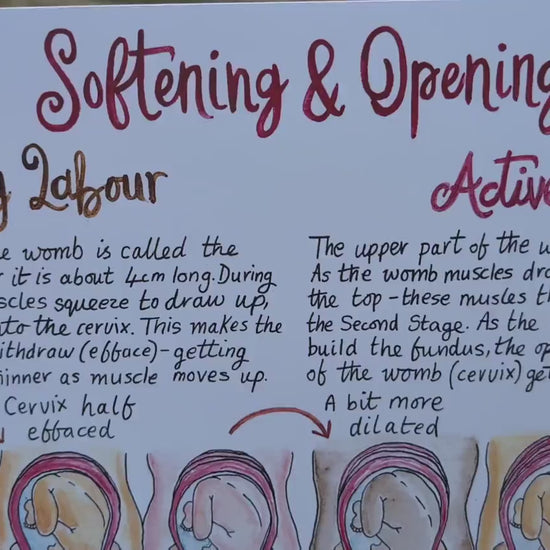 Softening & Opening
Labour
womb is called the
it is about 4cm long. During
squeeze to draw up,
the cervix. This makes the
(efface) - getting
as muscle moves up.
Cervix half
effaced
Active
The upper part of the
As the womb muscles
the top - these musles
the Second Stage. As the
build the fundus, the
of the womb (cervix)
A bit more
dilated